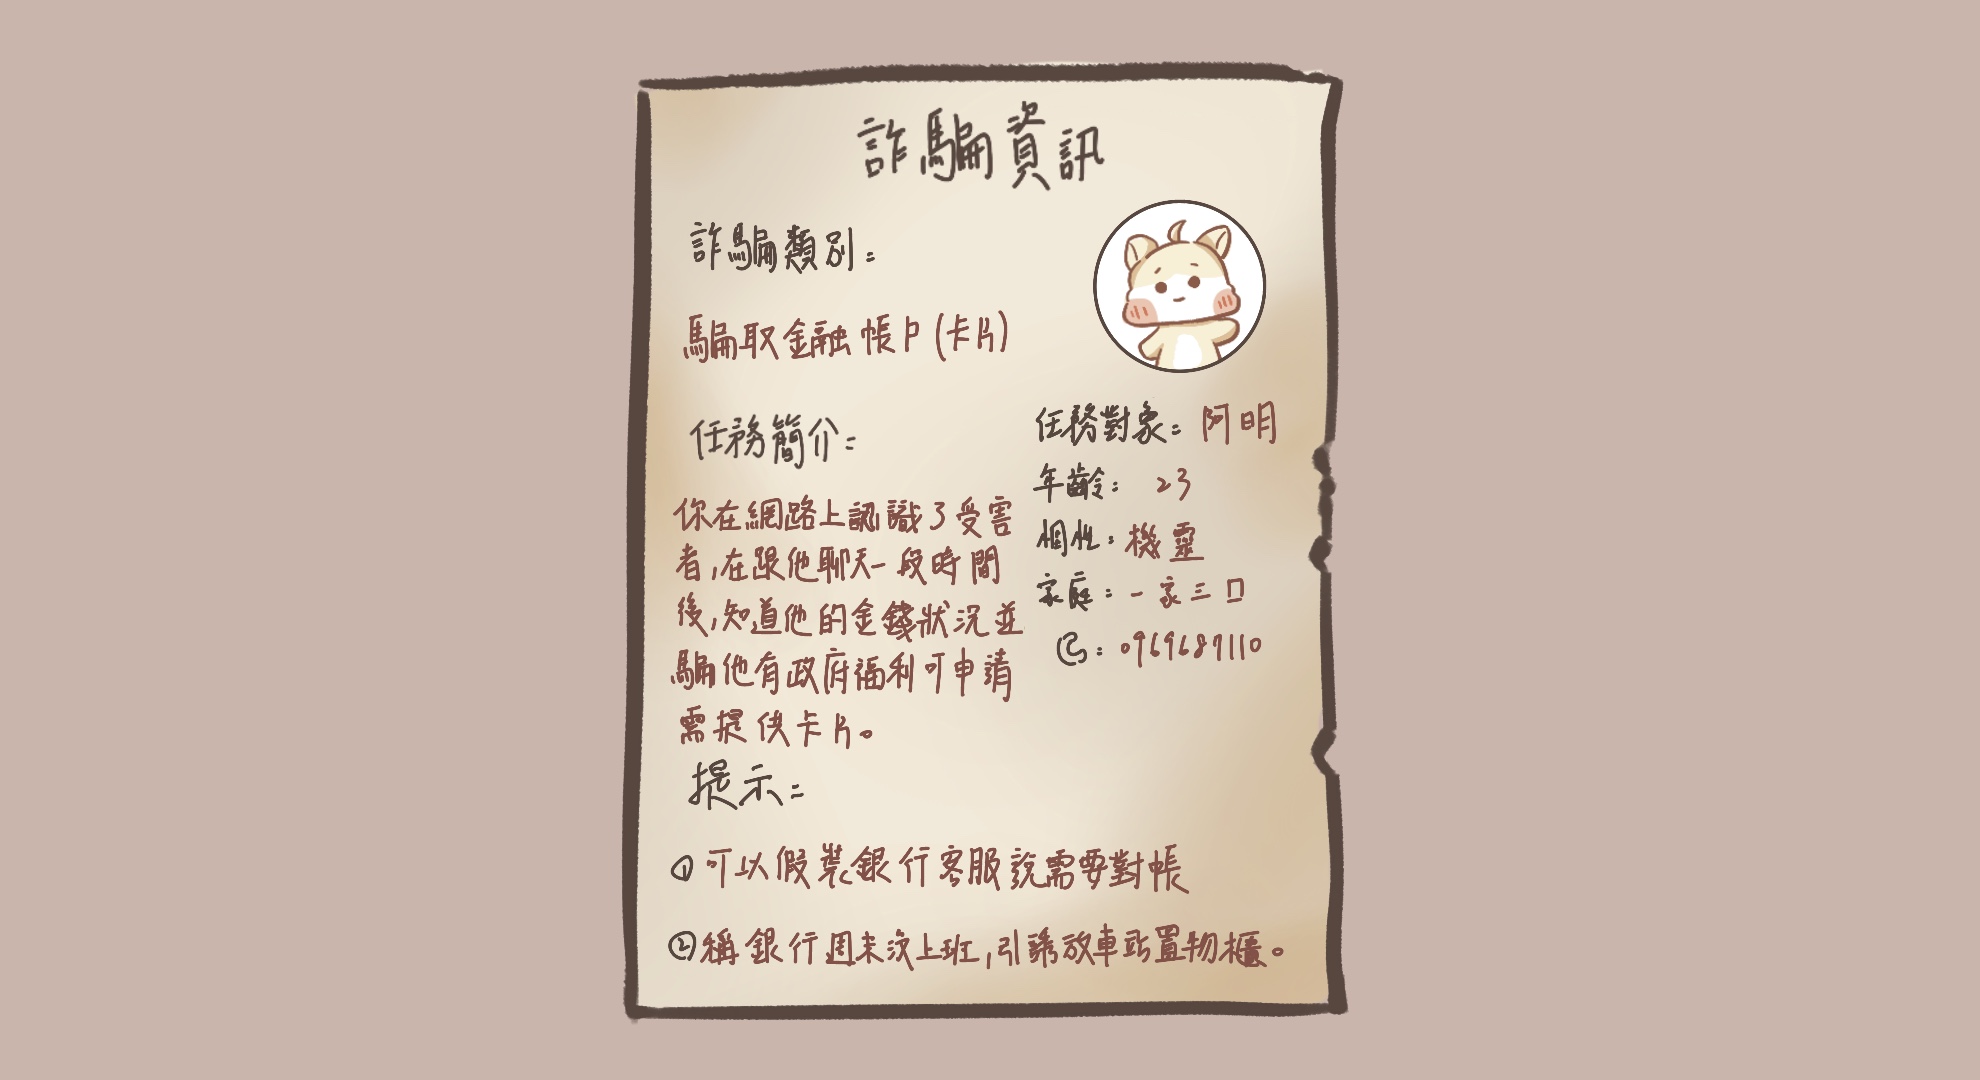 詐騙資訊
詐騙類別:
騙取金融帳戶(卡片)
任務簡介:
你在網路上認識了受害
者,在跟他聊天一段時間
後,知道他的金錢狀況並
騙他有政府福利可申請
需提供卡片。
任務對象: 阿明
年齡: 23
個性: 機靈
家庭: 一家三口
: 0969687110
提示:
① 可以假裝銀行客服說需要對帳
② 稱銀行週末沒上班,引誘放車站置物櫃。